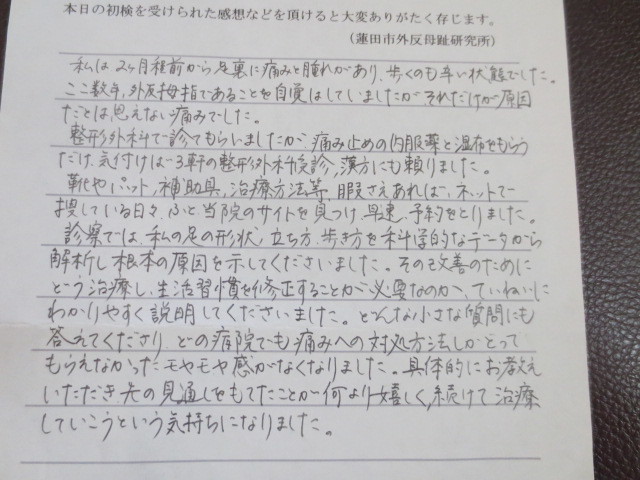 本日の初検を受けられた感想などを頂けると大変ありがたく存じます。
(蓮田市外反母趾研究所)
私は2ヶ月程前から足裏に痛みと腫れがあり、歩くのも辛い状態でした。
ここ数年、外反拇指であることを自覚はしていましたがそれだけが原因
だとは思えない痛みでした。
整形外科で診てもらいましたが、痛み止めの内服薬と湿布をもらう
だけ、気付けば3軒の整形外科を受診、漢方にも頼りました。
靴やパット、補助具、治療方法等、暇さえあれば、ネットで
捜している日々、ふと当院のサイトを見つけ、早速、予約をとりました。
診察では、私の足の形状、立ち方、歩き方を科学的なデータから
解析し根本の原因を示してくださいました。その改善のために
どう治療し、生活習慣を修正することが必要なのか、ていねいに
わかりやすく説明してくださいました。どんな小さな質問にも
答えてくださり、どの病院でも痛みへの対処方法しかとって
もらえなかったモヤモヤ感がなくなりました。具体的にお教え
いただき先の見通しをもてたことが何より嬉しく、続けて治療
していこうという気持ちになりました。